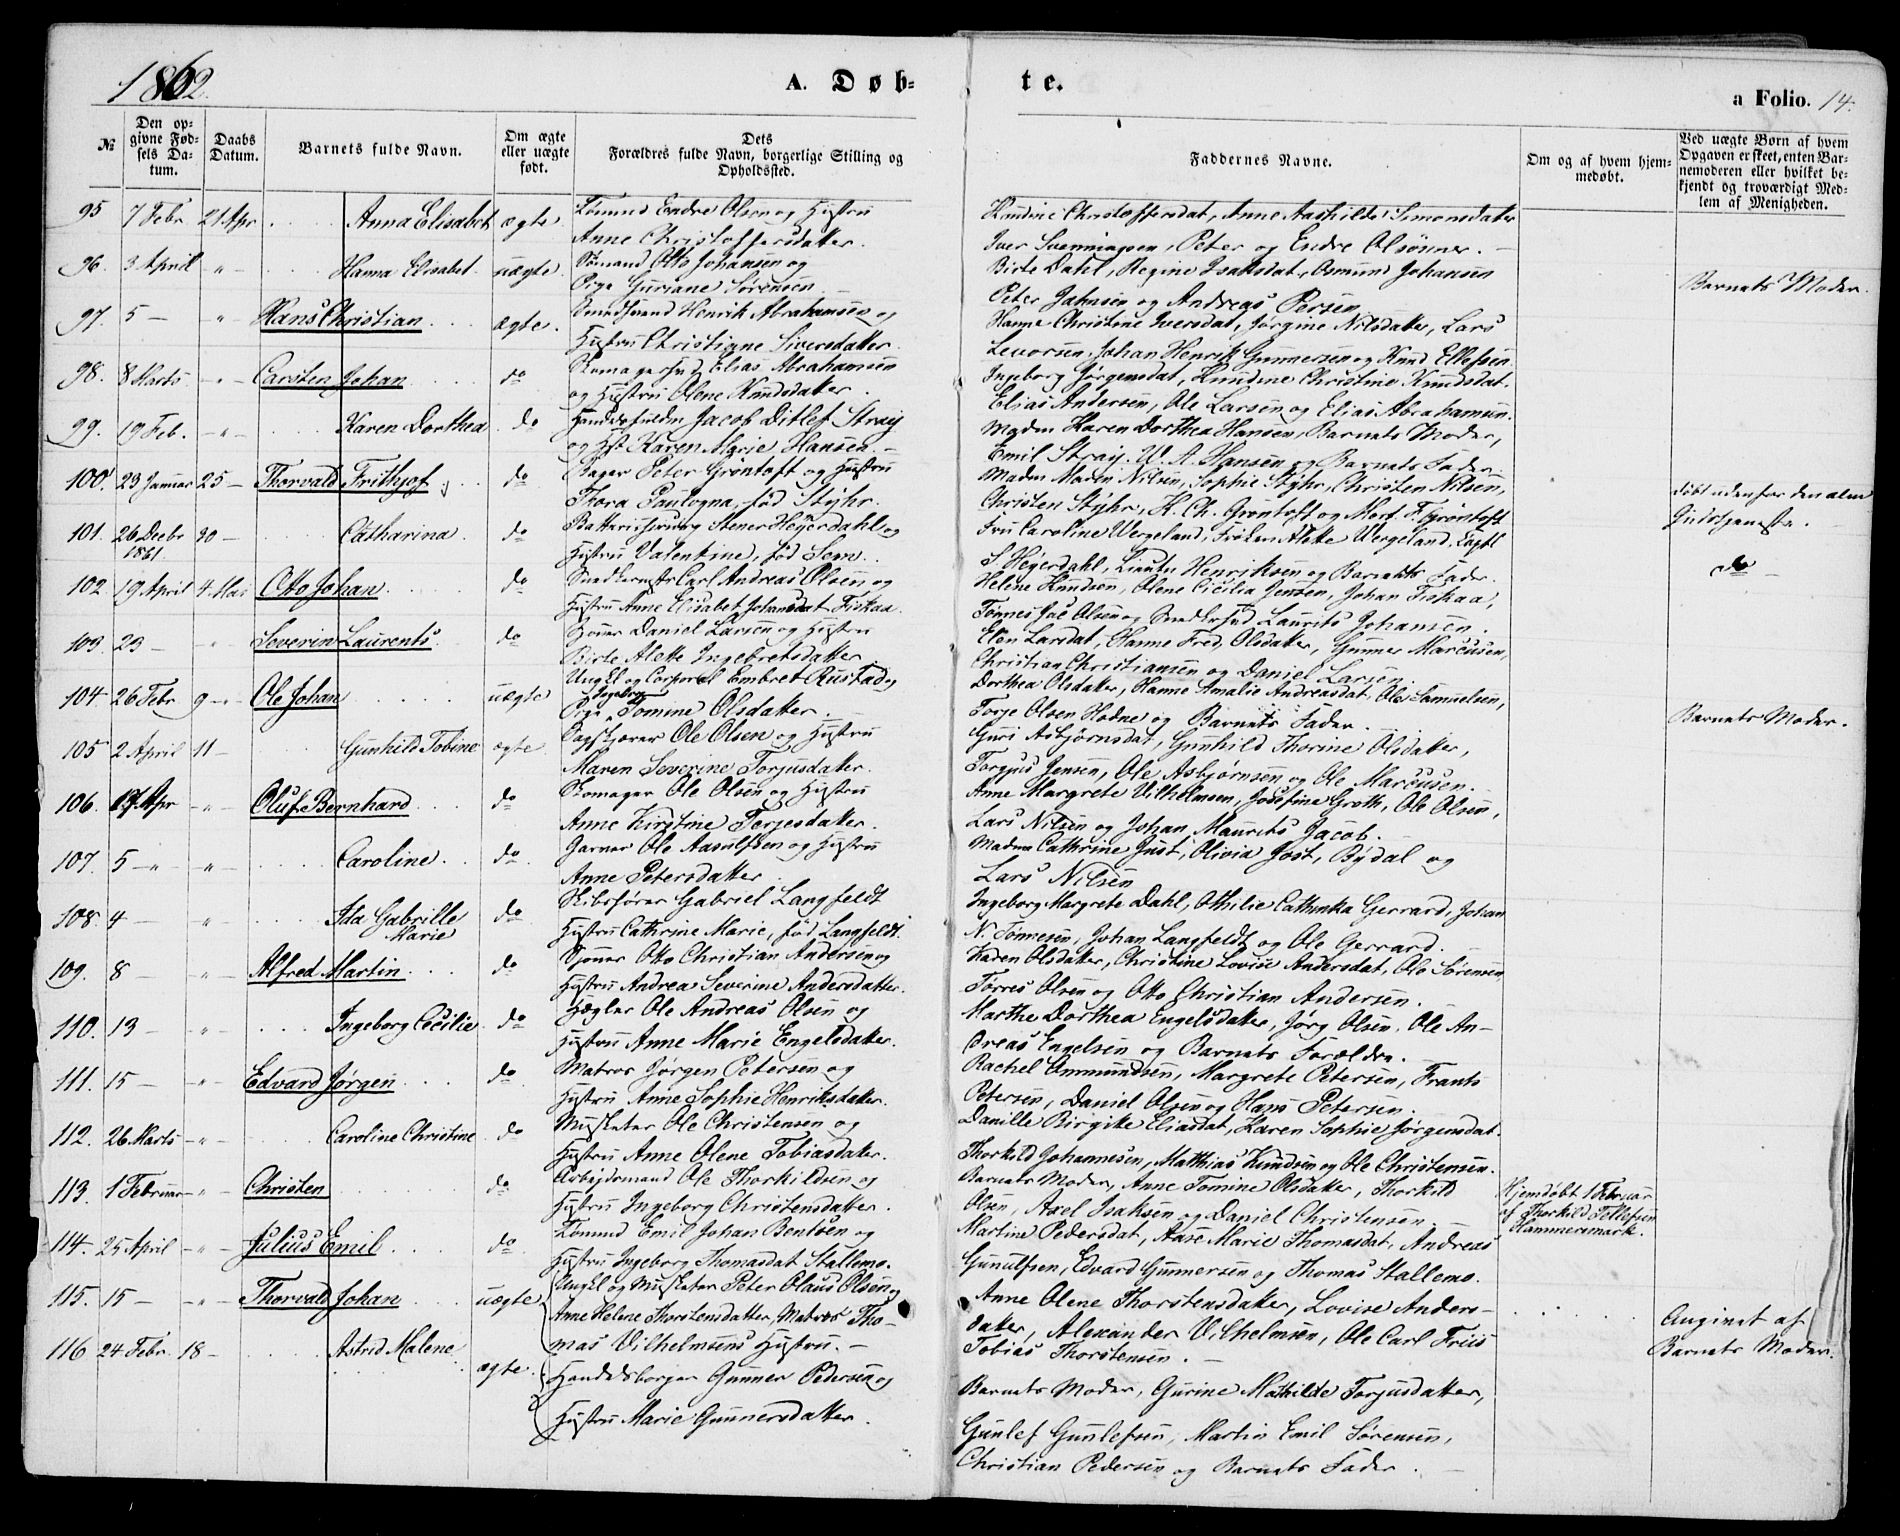 1862.
A. Døb-
te.
a Folio. 14.
№
Den op-
givne Fød-
sels Da-
tum.
Daabs
Datum.
Barnets fulde Navn.
Om ægte
eller uægte
født.
Dets
Forældres fulde Navn, borgerlige Stilling og
Opholdssted.
Faddernes Navne.
Om og af hvem hjem-
medøbt.
Ved uægte Børn af hvem
Opgaven er skeet, enten Bar-
nemoderen eller hvilket be-
kjendt og troværdigt Med-
lem af Menigheden.
95 7 Febr 21 Apr Anna Elisabet ægte Endre Olsen og Hustru Knudine Christoffersdat, Anne Aashilde Simonsdatter
Anne Christoffersdatter. Iver Svenningsen, Peter og Endre Olsønner. -
96. 3 April " - Hanna Elisabet. uægte. Sømand Otto Johansen og Birte Dahl, Regine Isaksdat, Osmund Johansen Barnets Moder.
Pige Guriane Sørensen - Peter Jahnsen og Andreas Persen
97. 5 - " - Hans Christian ægte. Henrik Abrahamsen og Hanne Christine Iversdat, Jørgine Nilsdatter, Lars
Hustru Christiane Siversdatter. Levorsen, Johan Henrik Gunnersen og Knud Ellefsen
98. 8 Marts - " - Carsten Johan do Elias Abrahamsen Ingeborg Jørgensdat, Knudine Christine Knudsdat.
og Hustru Olene Knudsdatter Elias Andersen, Ole Larsen og Elias Abrahamsen.
99. 19 Feb. - " - Karen Dorthea do Jacob Ditlef Stray Madm Karen Dorthea Hansen, Barnets Moder,
og Hst Karen Marie Hansen. - Emil Stray. W. A. Hansen og Barnets Fader.
100. 23 Januar 25 - Thorvald Frithjof do Bager Peter Grøntoft og Hustru Madm Maren Nilsen, Sophie Stÿhr, Christen Nilsen, døbt udenfor den alm
Thora Paulogna, fød Stÿhr. Christen Stÿhr, H. Ch. Grøntoft og Mort. F. Grøntoft Gudstjeneste.
101. 26 Decbr 30 - Catharina. do Stener Heÿerdahl og Fru Caroline Wergeland, Frøken Alette Wergeland,
1861. Hustru Valentine, fød Senn. S Hegerdahl, Henriksen og Barnets Fader. do -
102 19 April 4 Mai Otto Johan do Carl Andreas Olsen og Helene Knudsen, Olene Cicilia Jensen, Johan Fiskaa,
Hustru Anne Elisabet Johansdat Fiskaa. Tønnes Jac Olsen og Laurits Johansen.
103. 23 - - " - Severin Laurents. do Daniel Larsen og Hustru Elen Larsdat, Hanne Fred. Olsdatter, Gunner Marcusen,
Birte Alette Ingebretsdatter Christian Christiansen og Daniel Larsen.
104 26 Febr 9 - " - Ole Johan uægte Ungkl og Corporal Embret Rustad og Dorthea Olsdatter, Hanne Amalie Andreasdat, Ole Samuelsen,
Ingeborg
Pige Tomine Olsdatter. Torje Olsen Hodne og Barnets Fader. Barnets Moder.
105 2 April 11 - Gunhild Tobine ægte Sagskjærer Ole Olsen og Hustru Guri Asbjørnsdat, Gunhild Thorine Olsdatter,
Maren Severine Torjusdatter. Torjus Jensen, Ole Asbjørnsen og Ole Marcusen. -
106. 17 Apr - " - Oluf Bernhard do Skomager Ole Olsen og Hustru Anne Margrete Vilhelmsen, Josefine Groth, Ole Olsen,
Anne Kirstine Terjesdatter. Lars Nilsen og Johan Maurits Jacob.
107. 5 - " - " Caroline do Garver Ole Aasulfsen og Hustru Madm Cathrine Just, Olivia Jost, Bÿdal og
Anne Petersdatter Lars Nilsen
108. 4 - " - Ida Gabrille do Skibsfører Gabriel Langfeldt Ingeborg Margrete Dahl, Othilie Cathinka Gerrard, Johan
Marie Hustru Cathrine Marie, fød Langfeldt. N. Tønnesen, Johan Langfeldt og Ole Gerrard.
109. 8 - - " - Alfred Martin do Otto Christian Andersen og Karen Olsdatter, Christine Lovise Andersdat, Ole Sørensen,
Hustru Andrea Severine Andersdatter. Tørres Olsen og Otto Christian Andersen.
110. 13 - - " - Ingeborg Cecilie do Ole Andreas Olsen og Marthe Dorthea Engelsdatter, Jørg Olsen, Ole An-
Hustru Anne Marie Engelsdatter. dreas Engelsen og Barnets Forældre.
111. 15 - - " - Edvard Jørgen do Matros Jørgen Petersen og Rachel Ommundsen, Margrete Petersen, Frants
Hustru Anne Sophie Henriksdatter. Petersen, Daniel Olsen og Hans Petersen.
112. 26 Marts - " - Caroline Christine do Musketer Ole Christensen og Danille Birgitte Eliasdat, Karen Sophie Jørgensdat.
Hustru Anne Olene Tobiasdatter. Thorkild Johannesen, Matthias Knudsen og Ole Christensen.
113. 1 Februar - " - Christen do Arbeidsmand Ole Thorkildsen og Barnets Moder, Anne Tomine Olsdatter, Thorkild Hjemdøbt 1 Februar
Hustru Ingeborg Christensdatter. Olsen, Axel Isaksen og Daniel Christensen. - af Thorkild Tellefsen
Hammersmark.
114. 25 April - " - Julius Emil do Emil Johan Bentsen og Martine Pedersdat, Aase Marie Thomasdat, Andreas
Hustru Ingeborg Thomasdat Stallemo. Gunulfsen, Edvard Gunnersen og Thomas Stallemo.
115. 15 - - " - Thorvald Johan uægte Ungkl og Musketer Peter Olaus Olsen og Anne Olene Thorstensdatter, Lovise Anders- Angivet af
Anne Helene Thorstensdatter, Matros Tho- datter, Alexander Vilhelmsen, Ole Carl Friis Barnets Moder.
mas Vilhelmsens Hustru. - Tobias Thorstensen. -
116 24 Febr. 18 - Astrid Malene ægte. Handelsborger Gunner Pedersen og Barnets Moder, Gurine Mathilde Torjusdatter,
Hustru Marie Gunnersdatter. Gunlef Gunlefsen, Martin Emil Sørensen,
Christian Pedersen og Barnets Fader.